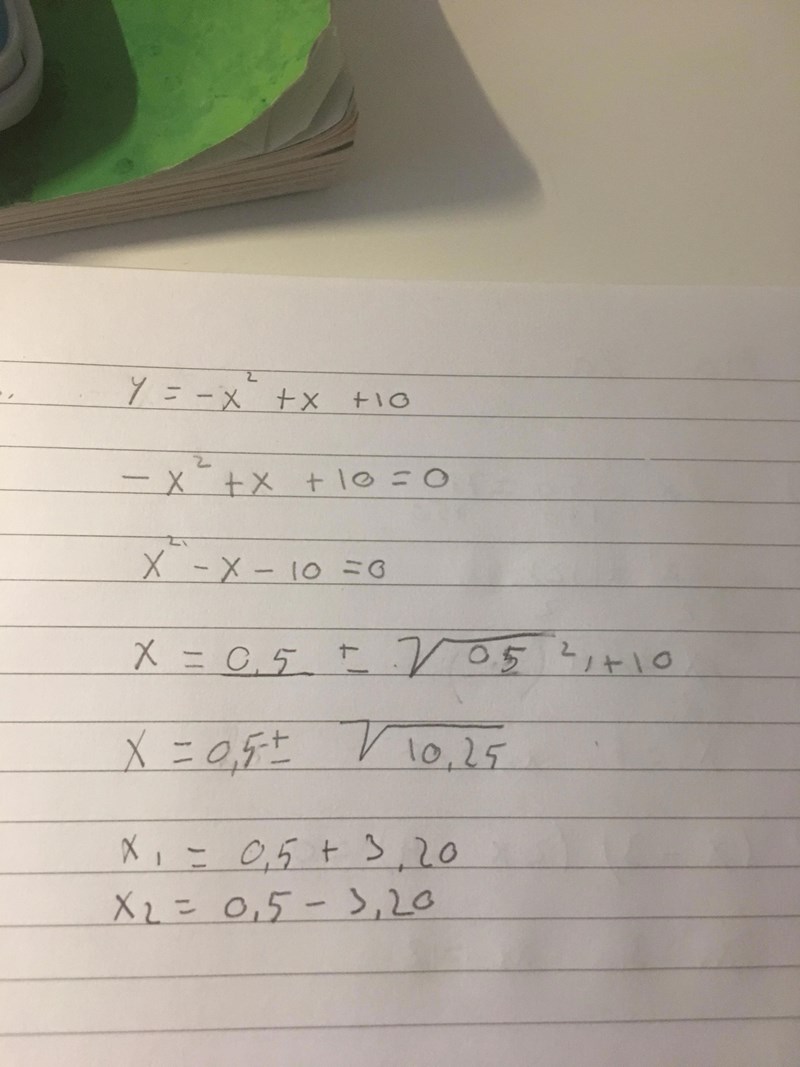 y = -x² + x + 10
-x² + x + 10 = 0
x² - x - 10 = 0
x = 0,5 ± √05², + 10
x = 0,5 ± √10,25
x₁ = 0,5 + 3,20
x₂ = 0,5 - 3,20